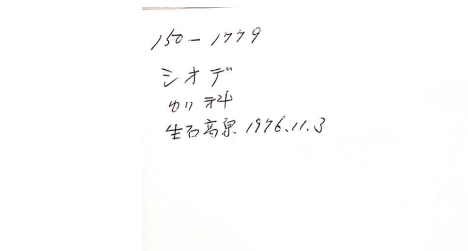 150-1779
シオデ
ユリ科
生石高原 1976.11.3